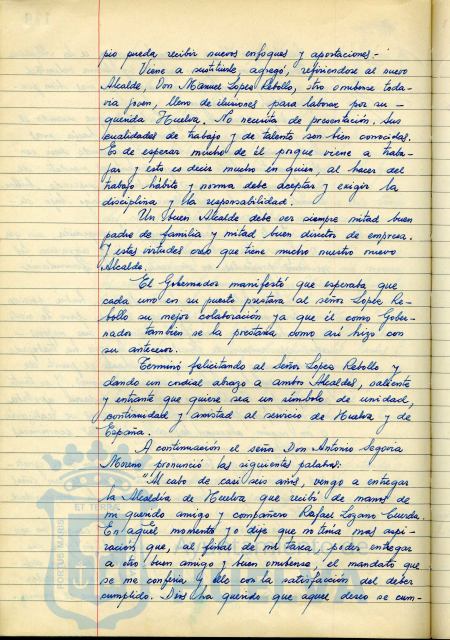 pio pueda recibir nuevos enfoques y aportaciones.-
Viene a sustituirle, agregó, refiriéndose al nuevo
Alcalde, Don Manuel López Rebollo, otro onubense toda-
vía joven, lleno de ilusiones para laborar por su
querida Huelva. No necesita de presentación. Sus
cualidades de trabajo y de talento son bien conocidas.
Es de esperar mucho de él porque viene a traba-
jar y esto es decir mucho en quien, al hacer del
trabajo hábito y norma debe aceptar y exigir la
disciplina y la responsabilidad.
Un buen Alcalde debe ser siempre mitad buen
padre de familia y mitad buen director de empresa.
Y estas virtudes creo que tiene mucho nuestro nuevo
Alcalde.
El Gobernador manifestó que esperaba que
cada uno en su puesto prestara al señor López Re-
bollo su mejor colaboración ya que él como Gober-
nador también se la prestaría como así hizo con
su antecesor.
Terminó felicitando al Señor López Rebollo y
dando un cordial abrazo a ambos Alcaldes, saliente
y entrante que quiere sea un símbolo de unidad,
continuidad y amistad al servicio de Huelva y de
España.
A continuación el señor Don Antonio Segovia
Moreno pronunció las siguientes palabras:
"Al cabo de casi seis años, vengo a entregar
la Alcaldía de Huelva que recibí de manos de
mi querido amigo y compañero Rafael Lozano Cuerda.
En aquél momento yo dije que no tenía mas aspi-
ración que, al final de mi tarea, poder entregar
a otro buen amigo y buen onubense, el mandato que
se me confería y ello con la satisfacción del deber
cumplido. Dios ha querido que aquel deseo se cum-
PORTUS MARIS
ET TERRAE